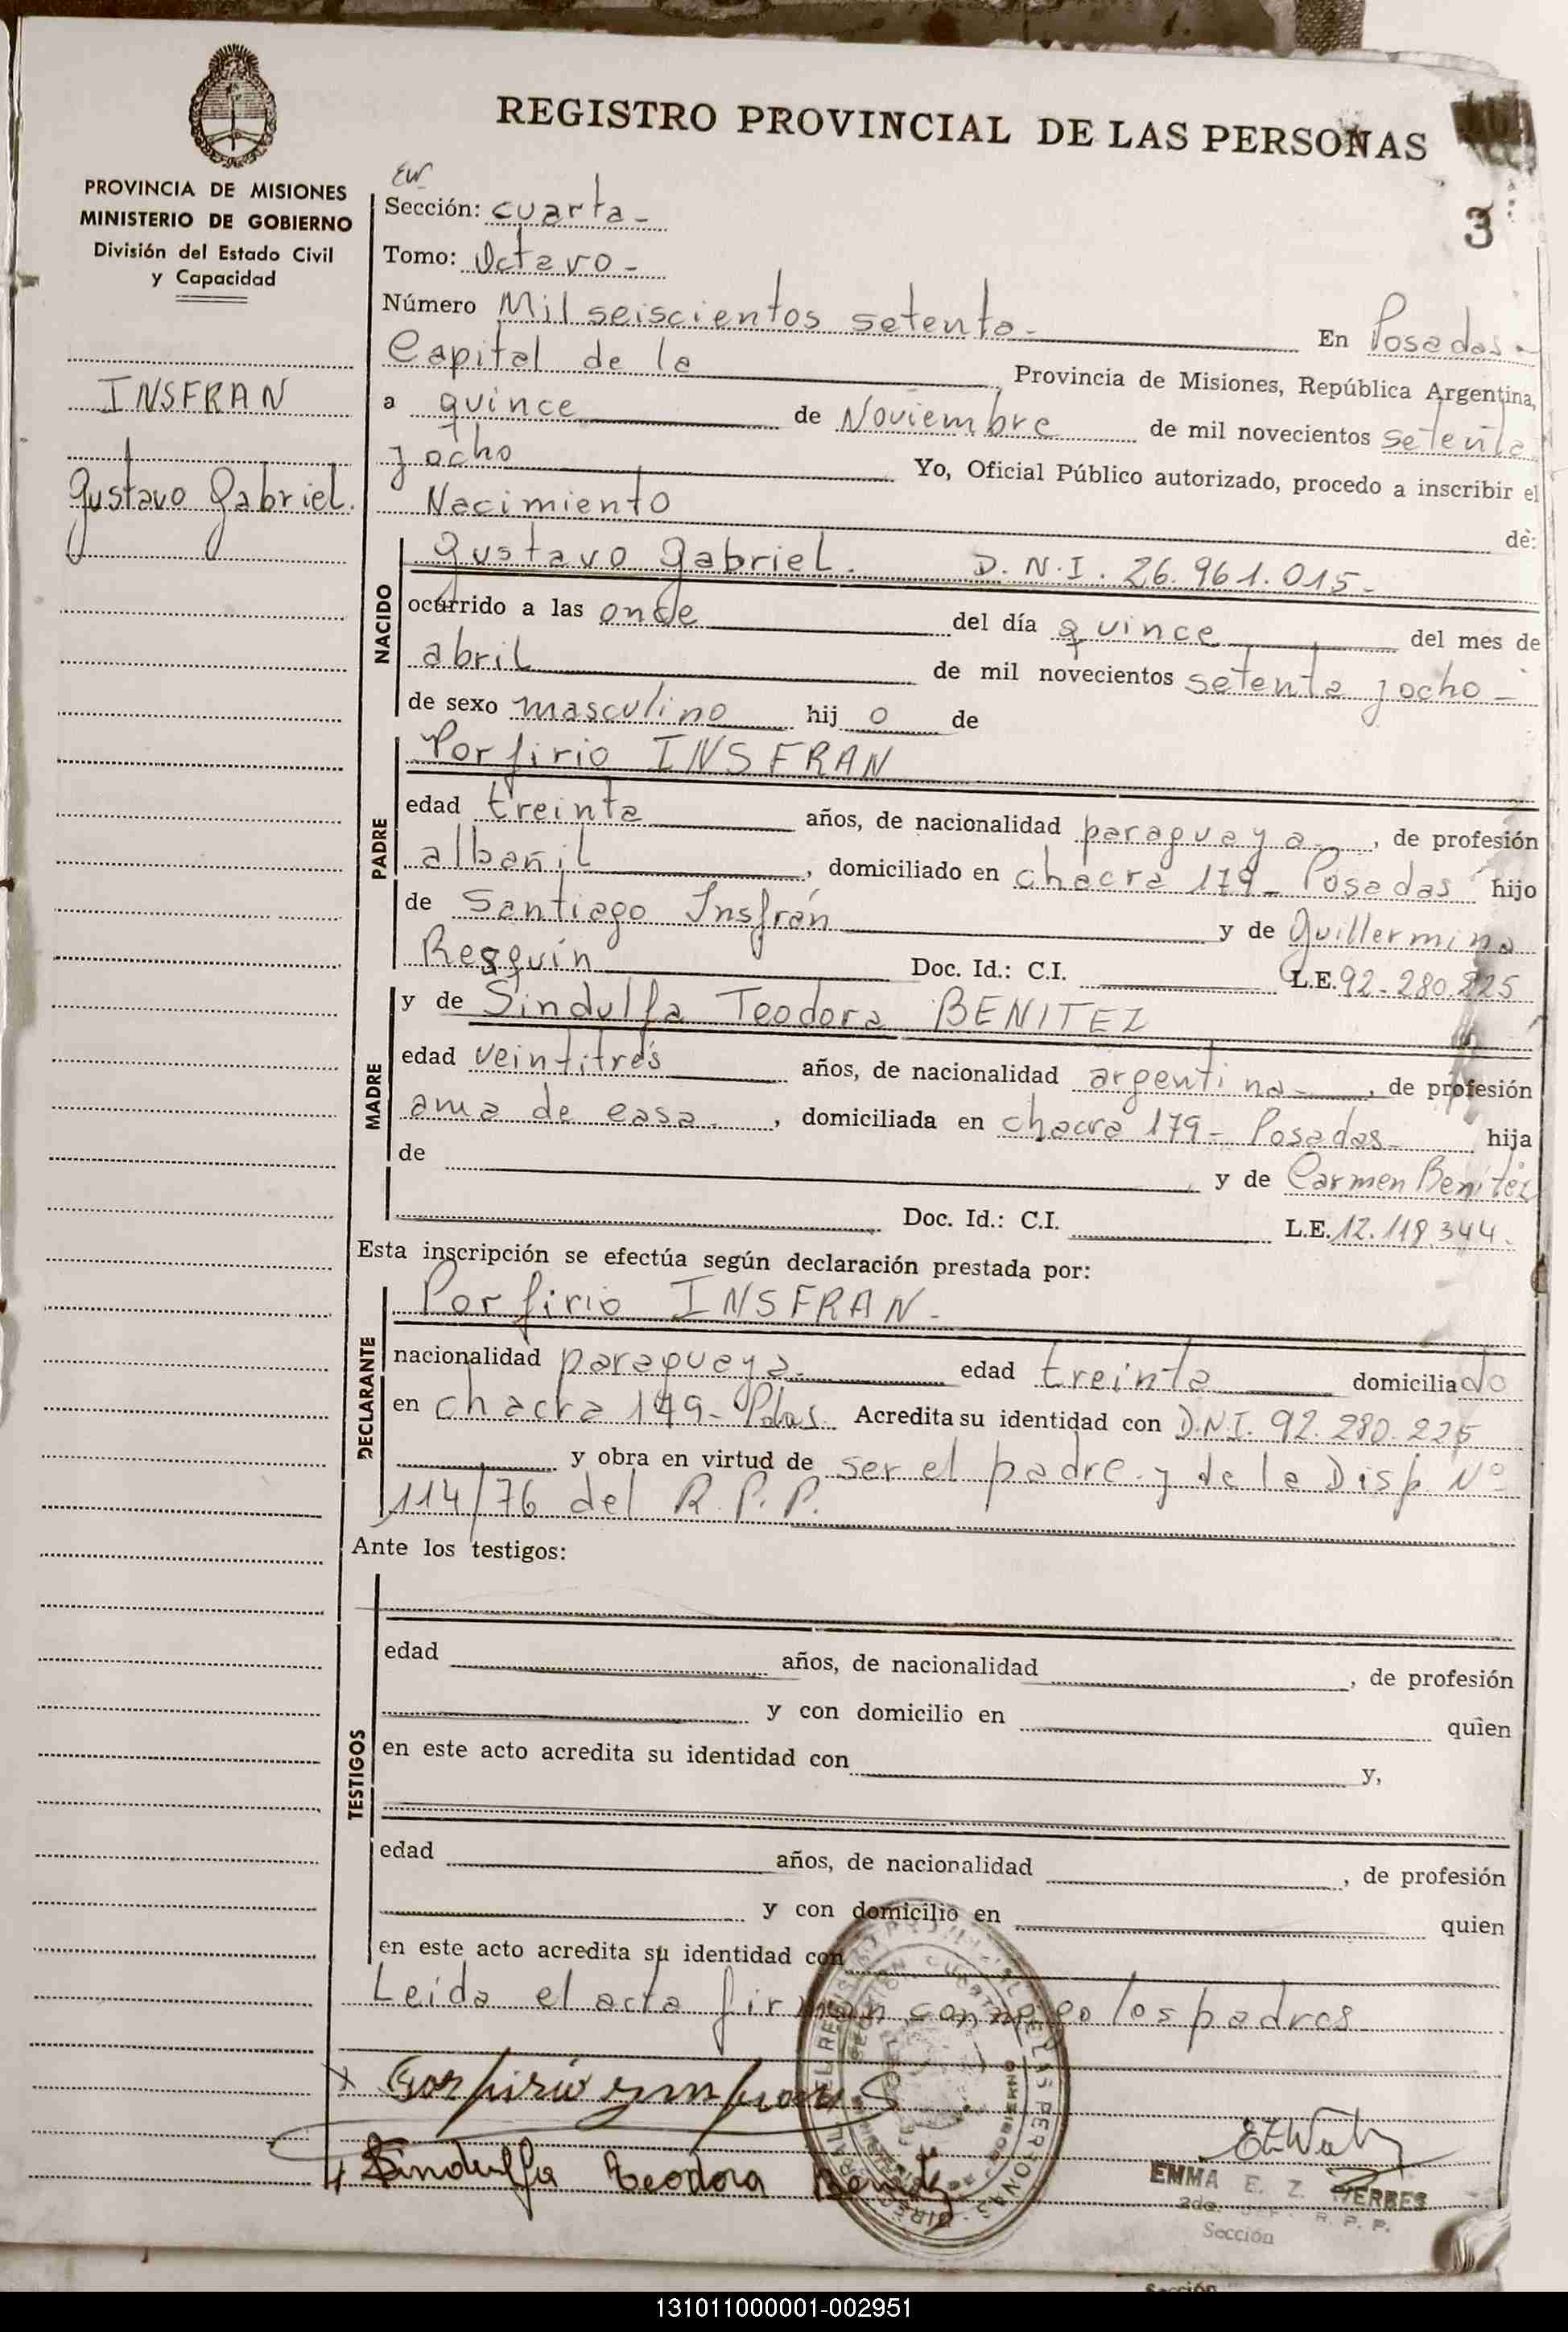 REGISTRO PROVINCIAL DE LAS PERSONAS
3
PROVINCIA DE MISIONES
MINISTERIO DE GOBIERNO
División del Estado Civil
y Capacidad
INSFRAN
Gustavo Gabriel.
Sección: cuarta -
Tomo: Octavo -
Número Mil seiscientos setenta - En Posadas -
Capital de la Provincia de Misiones, República Argentina,
a quince de Noviembre de mil novecientos setenta
y ocho Yo, Oficial Público autorizado, procedo a inscribir el
Nacimiento de:
NACIDO
Gustavo Gabriel. D.N.I. 26.961.015 -
ocurrido a las once del día quince del mes de
abril de mil novecientos setenta y ocho -
de sexo masculino hij o de
PADRE
Porfirio INSFRAN
edad treinta años, de nacionalidad paraguaya, de profesión
albañil, domiciliado en chacra 179 - Posadas hijo
de Santiago Insfrán y de Guillermina
Resquín Doc. Id.: C.I. L.E. 92.280.225
MADRE
y de Sindulfa Teodora BENITEZ
edad veintitrés años, de nacionalidad argentina -, de profesión
ama de casa., domiciliada en chacra 179 - Posadas - hija
de y de Carmen Benítez
Doc. Id.: C.I. L.E. 12.118.344.
Esta inscripción se efectúa según declaración prestada por:
DECLARANTE
Porfirio INSFRAN -
nacionalidad paraguaya. edad treinta domiciliado
en chacra 179 - Pdas. Acredita su identidad con D.N.I. 92.280.225
y obra en virtud de ser el padre y de la Disp. Nº
114/76 del R.P.P.
Ante los testigos:
TESTIGOS
edad años, de nacionalidad , de profesión
y con domicilio en quien
en este acto acredita su identidad con y,
edad años, de nacionalidad , de profesión
y con domicilio en quien
en este acto acredita su identidad con
Leída el acta firman conmigo los padres
Sindulfa Teodora Benitez
EMMA E. Z.
2do. R. P. P.
Sección
Sección
131011000001-002951